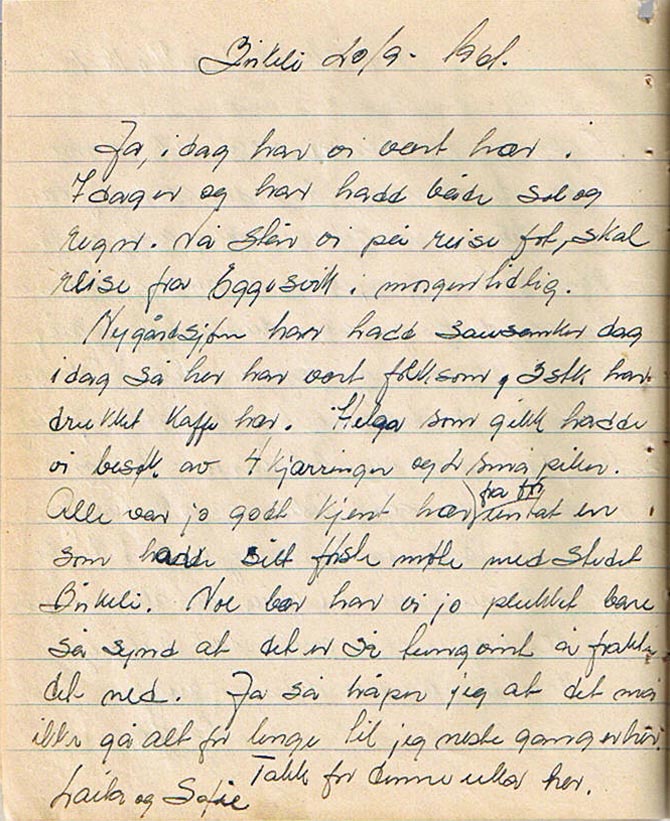 Birkeli 20/9- 1961.
Ja, i dag har vi vært her i
7 dager og har hadd både sol og
regn. Nå står vi på reise fot, skal
reise fra Eggesvik i morgen tidlig.
Nygårdsjøen har hadd sausanker dag
idag så her har vært folksom, 3 stk har
drukket kaffe her. Helga som gikk hadde
vi besøk av 4 kjærringer og 2 små piker.
Alle var jo godt kjent her fra før untat en
som hadde sitt første møte med stedet
Birkeli. Noe bær har vi jo plukket bare
så synd at det er så tungvint å frakte
det ned. Ja så håper jeg at det må
ikke gå alt for lenge til jeg neste gang er her.
Takk for denne uka her.
Laila og Sofie